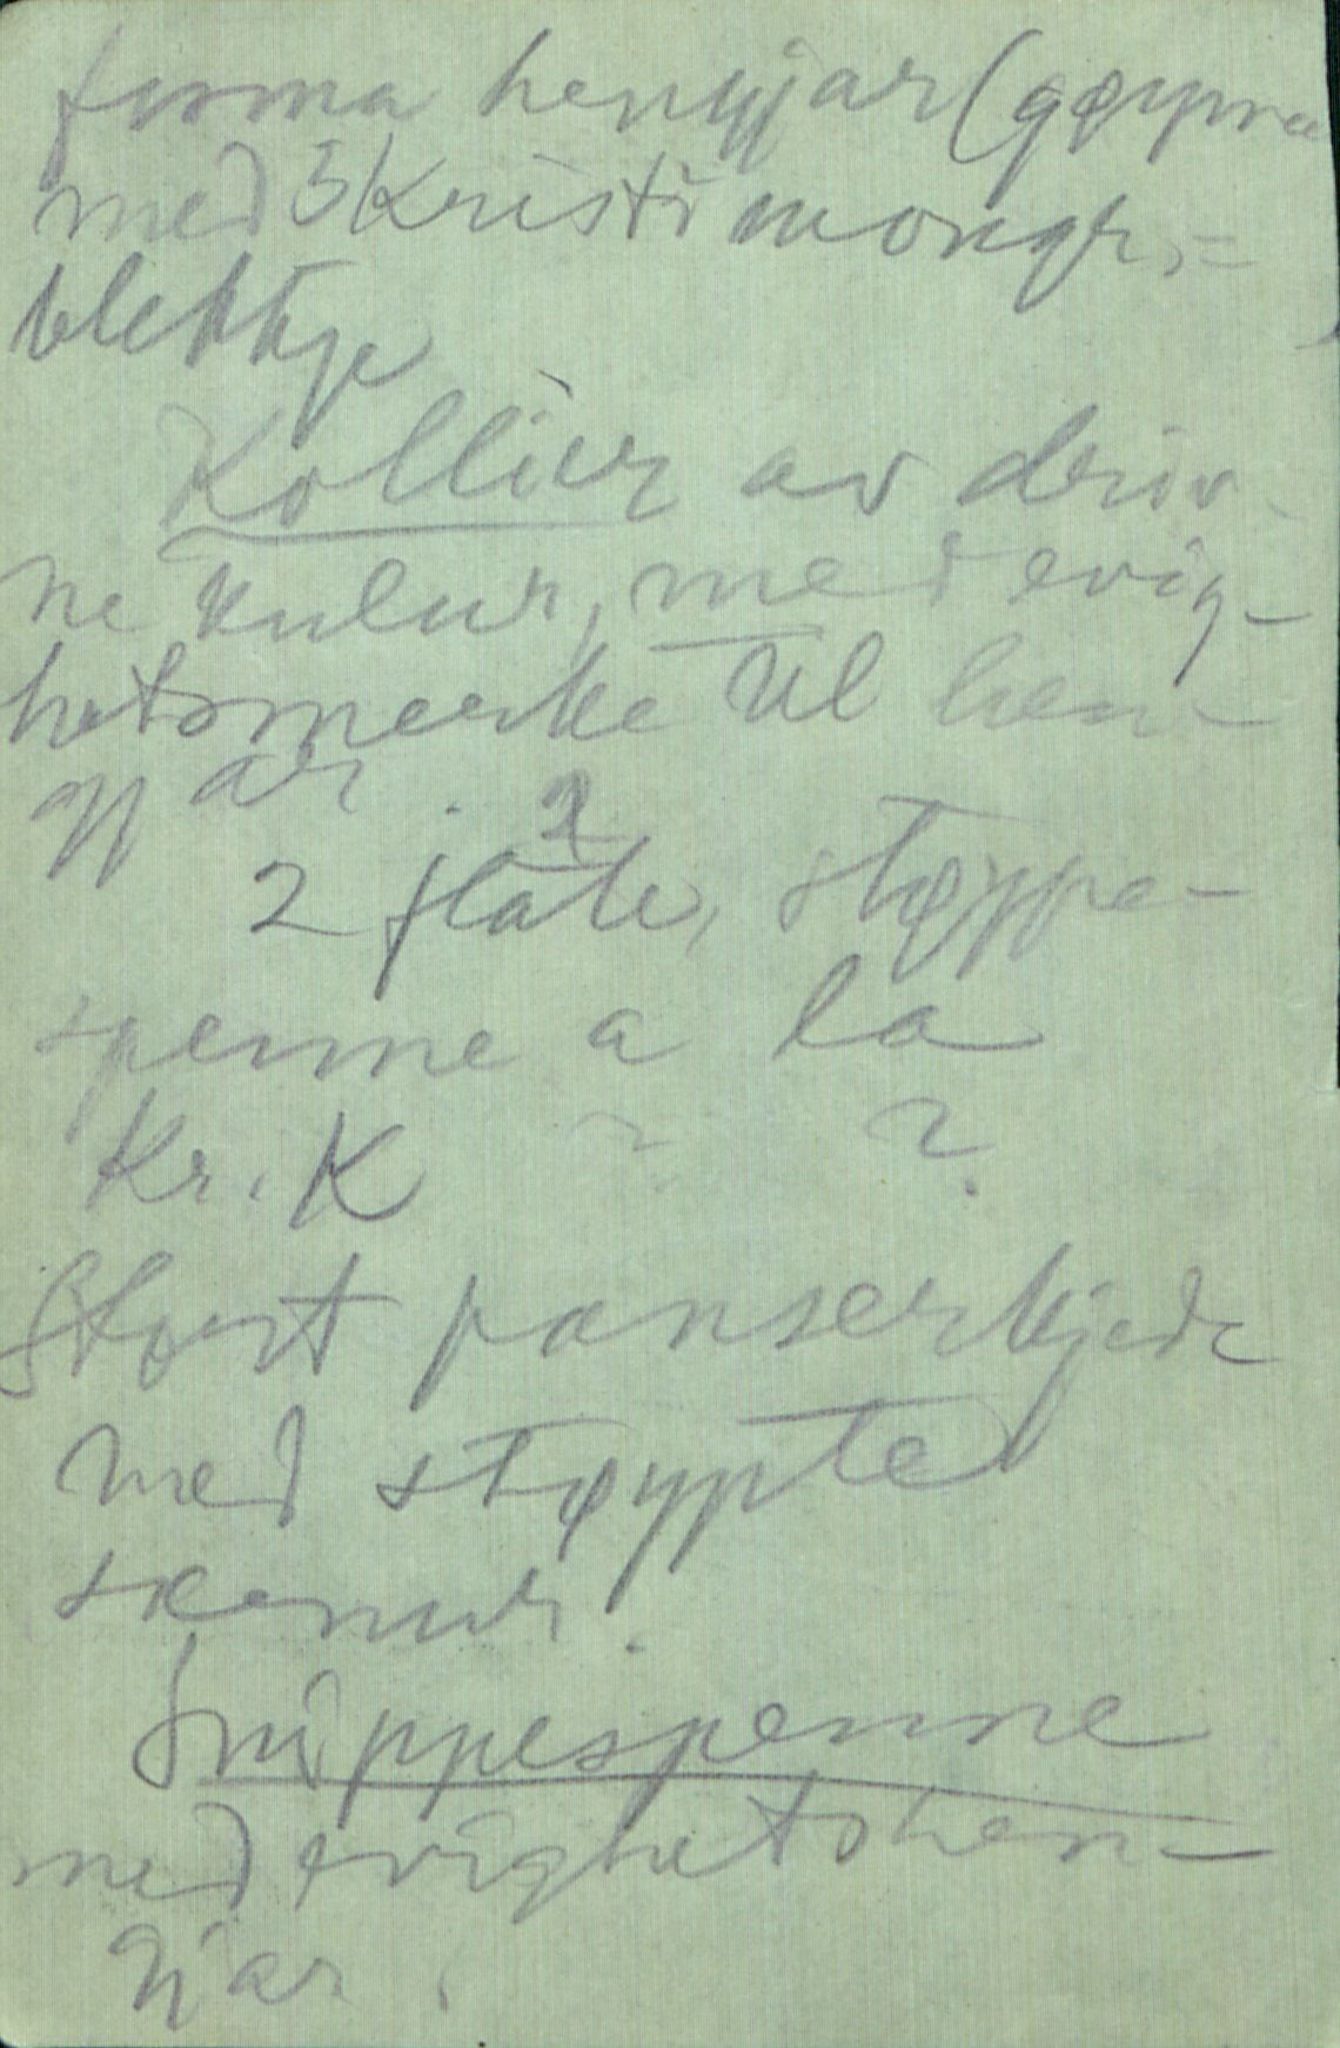 forma hengjar (gøyma
med 5 Kristi monogr.=
blekkje
Kollier av driv-
ne kulur, med evig-
hetsmerke til hen-
gjar.
2 flate, støype-
spenne a la
Kr. K ? ?
Stort panserkjede
med støypte
skenur.
Snippespenne
med evighetshen-
gjar.